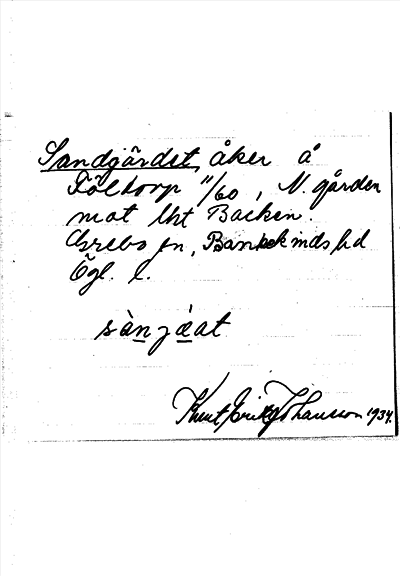 Sandgärdet, åker å
Föltorp 11/60, N. gården
mot lht Backen.
Grebo sn, Bankekinds hd
Ögl. l.
sànjáat
Knut Erik Johansson 1934.